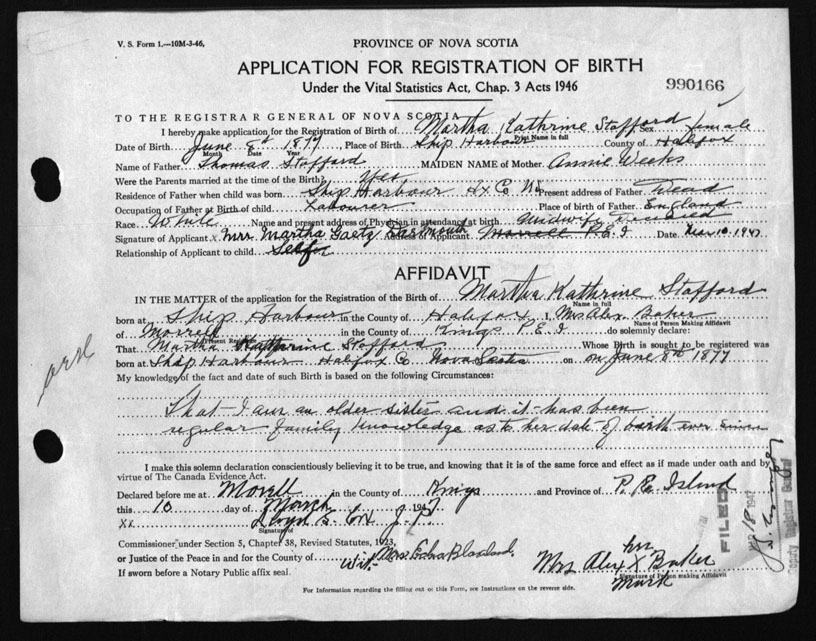 V. S. Form 1.—10M-3-46,
PROVINCE OF NOVA SCOTIA
APPLICATION FOR REGISTRATION OF BIRTH
Under the Vital Statistics Act, Chap. 3 Acts 1946
990166
TO THE REGISTRAR GENERAL OF NOVA SCOTIA
I hereby make application for the Registration of Birth of Martha Kathrine Stafford Sex female
Print Name in full
Date of Birth June 8th 1877 Place of Birth Ship Harbour County of Halifax
Month Date Year
Name of Father Thomas Stafford MAIDEN NAME of Mother Annie Weeks
Were the Parents married at time of the Birth? Yes
Residence of Father when child was born Ship Harbour Hx C. NS Present address of Father Dead
Occupation of Father at Birth of child Labourer Place of Birth of Father England
Race White Name and present address of Physician in attendance at birth Midwife Deceased
Signature of Applicant x Mrs Martha Gaetz Dartmouth Address of Applicant Morrell P.E.I Date Mar 10 1947
Relationship of Applicant to child Self
AFFIDAVIT
IN THE MATTER of the application for the Registration of Birth of Martha Kathrine Stafford
Name in full
born at Ship Harbour in the County of Halifax I, Mrs Alex Baker
Name of Person Making Affidavit
of Morrell in the County of Kings P.E.I do solemnly declare:
Present Residence
That Martha Katherine Stafford Whose Birth is sought to be registered was
born at Ship Harbour Halifax Co Nova Scotia on on June 8th 1877
My knowledge of the fact and date of such Birth is based on the following Circumstances:
That I am an older sister and it has been
regular family knowledge as to her date of birth ever since
I make this solemn declaration conscientiously believing it to be true, and knowing that it is of the same force and effect as if made under oath and by
virtue of The Canada Evidence Act.
Declared before me at Morell in the County of Kings and Province of P. E. Island
this 10 day of March 1947
xx Lloyd S. Cox J.P.
Signature of
Commissioner under Section 5, Chapter 38, Revised Statutes, 1923,
or Justice of the Peace in and for the County of
Wit- Mrs.
If sworn before a Notary Public affix seal.
her
Mrs Alex X Baker
Signature of Person making Affidavit
Mark
For Information regarding the filling out of this Form, see Instructions on the reverse side.
FILED
18 1947